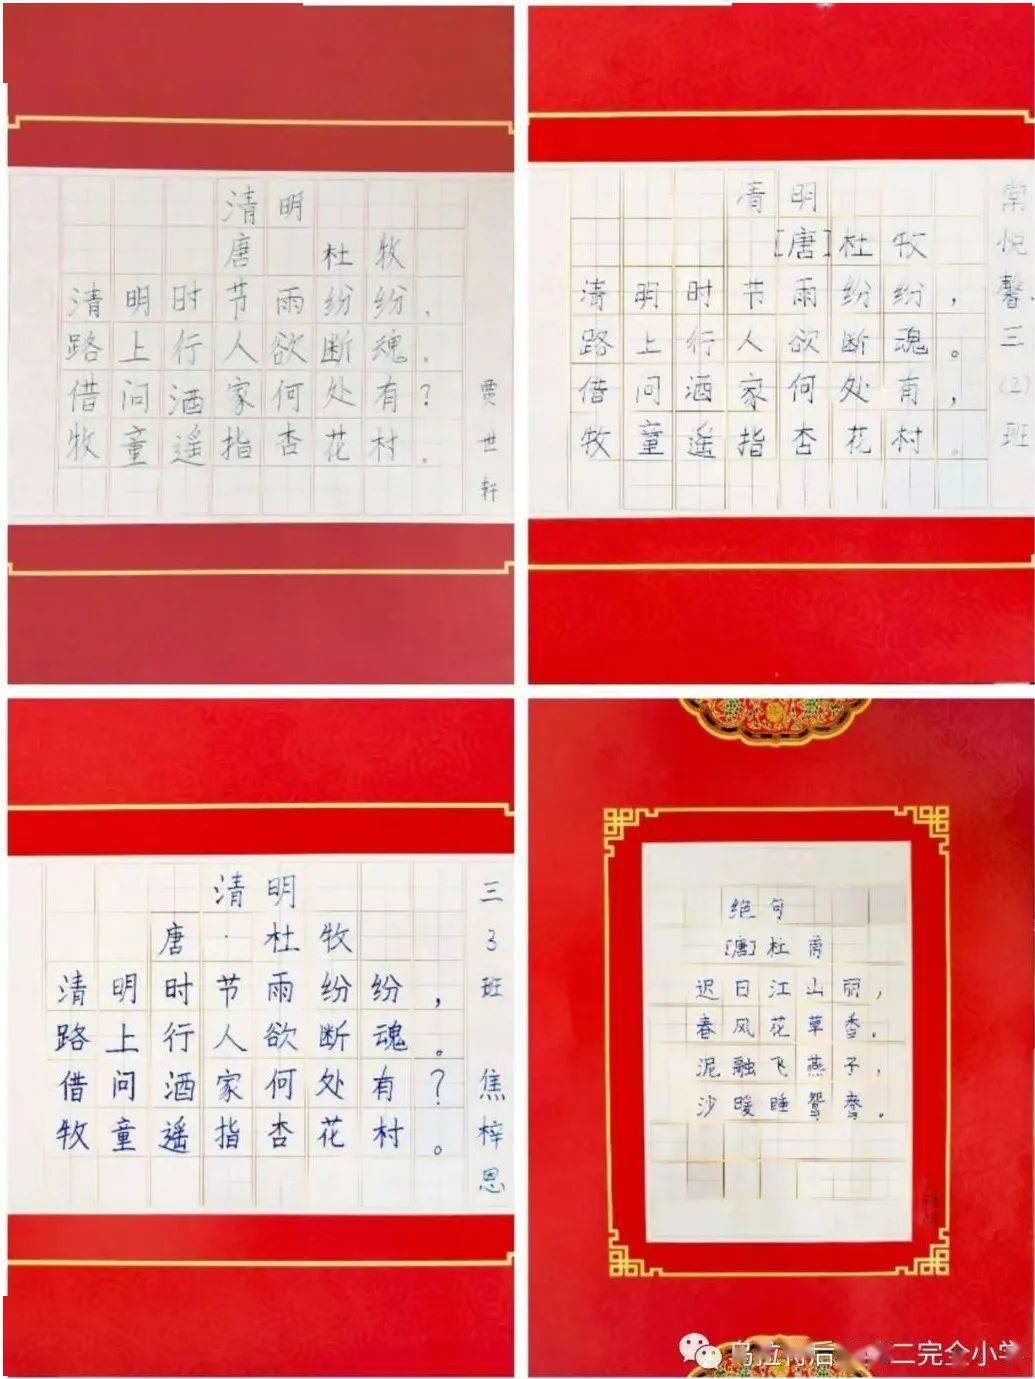 清明
唐 杜牧
清明时节雨纷纷.
路上行人欲断魂.
借问酒家何处有?
牧童遥指杏花村.
贾世轩
清明
[唐]杜牧
清明时节雨纷纷，
路上行人欲断魂。
借问酒家何处有，
牧童遥指杏花村。
常悦馨三(2)班
清明
唐·杜牧
清明时节雨纷纷，
路上行人欲断魂。
借问酒家何处有?
牧童遥指杏花村。
三3班 焦梓恩
绝句
[唐]杜甫
迟日江山丽，
春风花草香.
泥融飞燕子，
沙暖睡鸳鸯。
二完全小学